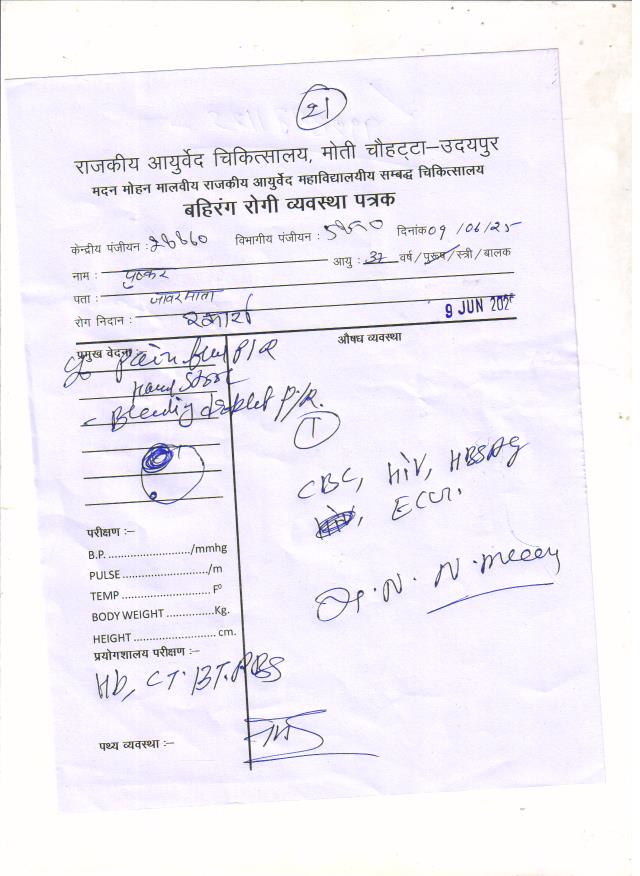 21
राजकीय आयुर्वेद चिकित्सालय, मोती चौहट्टा–उदयपुर
मदन मोहन मालवीय राजकीय आयुर्वेद महाविद्यालयीय सम्बद्ध चिकित्सालय
बहिरंग रोगी व्यवस्था पत्रक
केन्द्रीय पंजीयन : विभागीय पंजीयन : दिनांक 09 /06/25
नाम : पुष्कर आयु : 37 वर्ष / पुरूष / स्त्री / बालक
पता : जावरमाता
रोग निदान : रक्तार्श 9 JUN 202
प्रमुख वेदना:- औषध व्यवस्था
Pain P/R
Hard stool
- Bleeding droplet P/R.
1
CBC, HIV, HBSAg
ECG.
परीक्षण :–
B.P. ..................../mmhg
PULSE ...................../m
TEMP ...................... Fº
BODY WEIGHT ............Kg.
HEIGHT ...................... cm.
प्रयोगशालय परीक्षण :–
Hb, CT. BT. RBS
पथ्य व्यवस्था :–